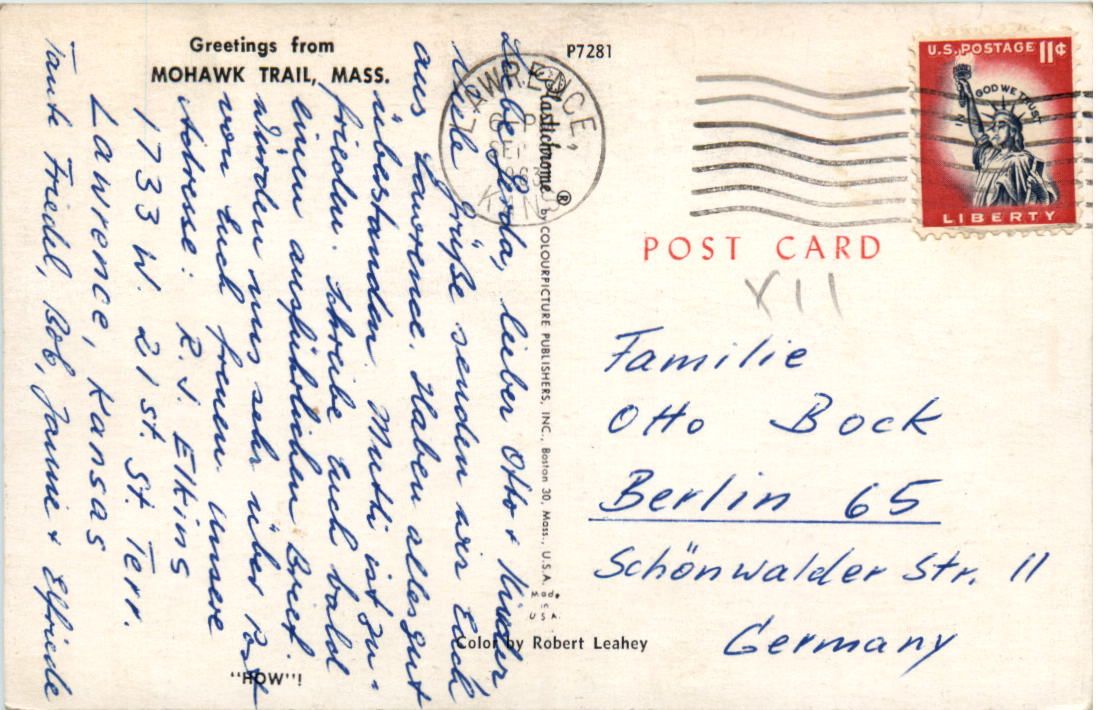 Greetings from
MOHAWK TRAIL, MASS.
P7281
Liebe Gerda, lieber Otto + Kinder
viele Grüße senden wir Euch
aus Lawrence. Haben alles gut
überstanden. Mutti ist zu-
frieden. Schreibe euch bald
einen ausführlichen Brief.
Würden uns sehr über Post
von Euch freuen. Unsere
Adresse: R. J. Elkins
1733 W. 21st. St. Terr.
Lawrence, Kansas
Tante Friedel, Bob, + Elfriede
"HOW"!
Plastichrome ® by COLOURPICTURE PUBLISHERS, INC., Boston 30, Mass., U.S.A.
Made
in
U S A.
Color by Robert Leahey
LAWRENCE,
KAN
U.S. POSTAGE 11¢
IN GOD WE TRUST
LIBERTY
POST CARD
XII
Familie
Otto Bock
Berlin 65
Schönwalder Str. 11
Germany